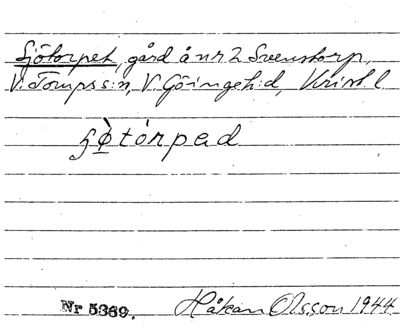 Sjötorpet, gård å nr 2 Svenstorp,
V. Tompss:n, V. Göingeh:d, Krist. l
ʃø̀tórpad
Nr 5369. Håkan Olsson 1944